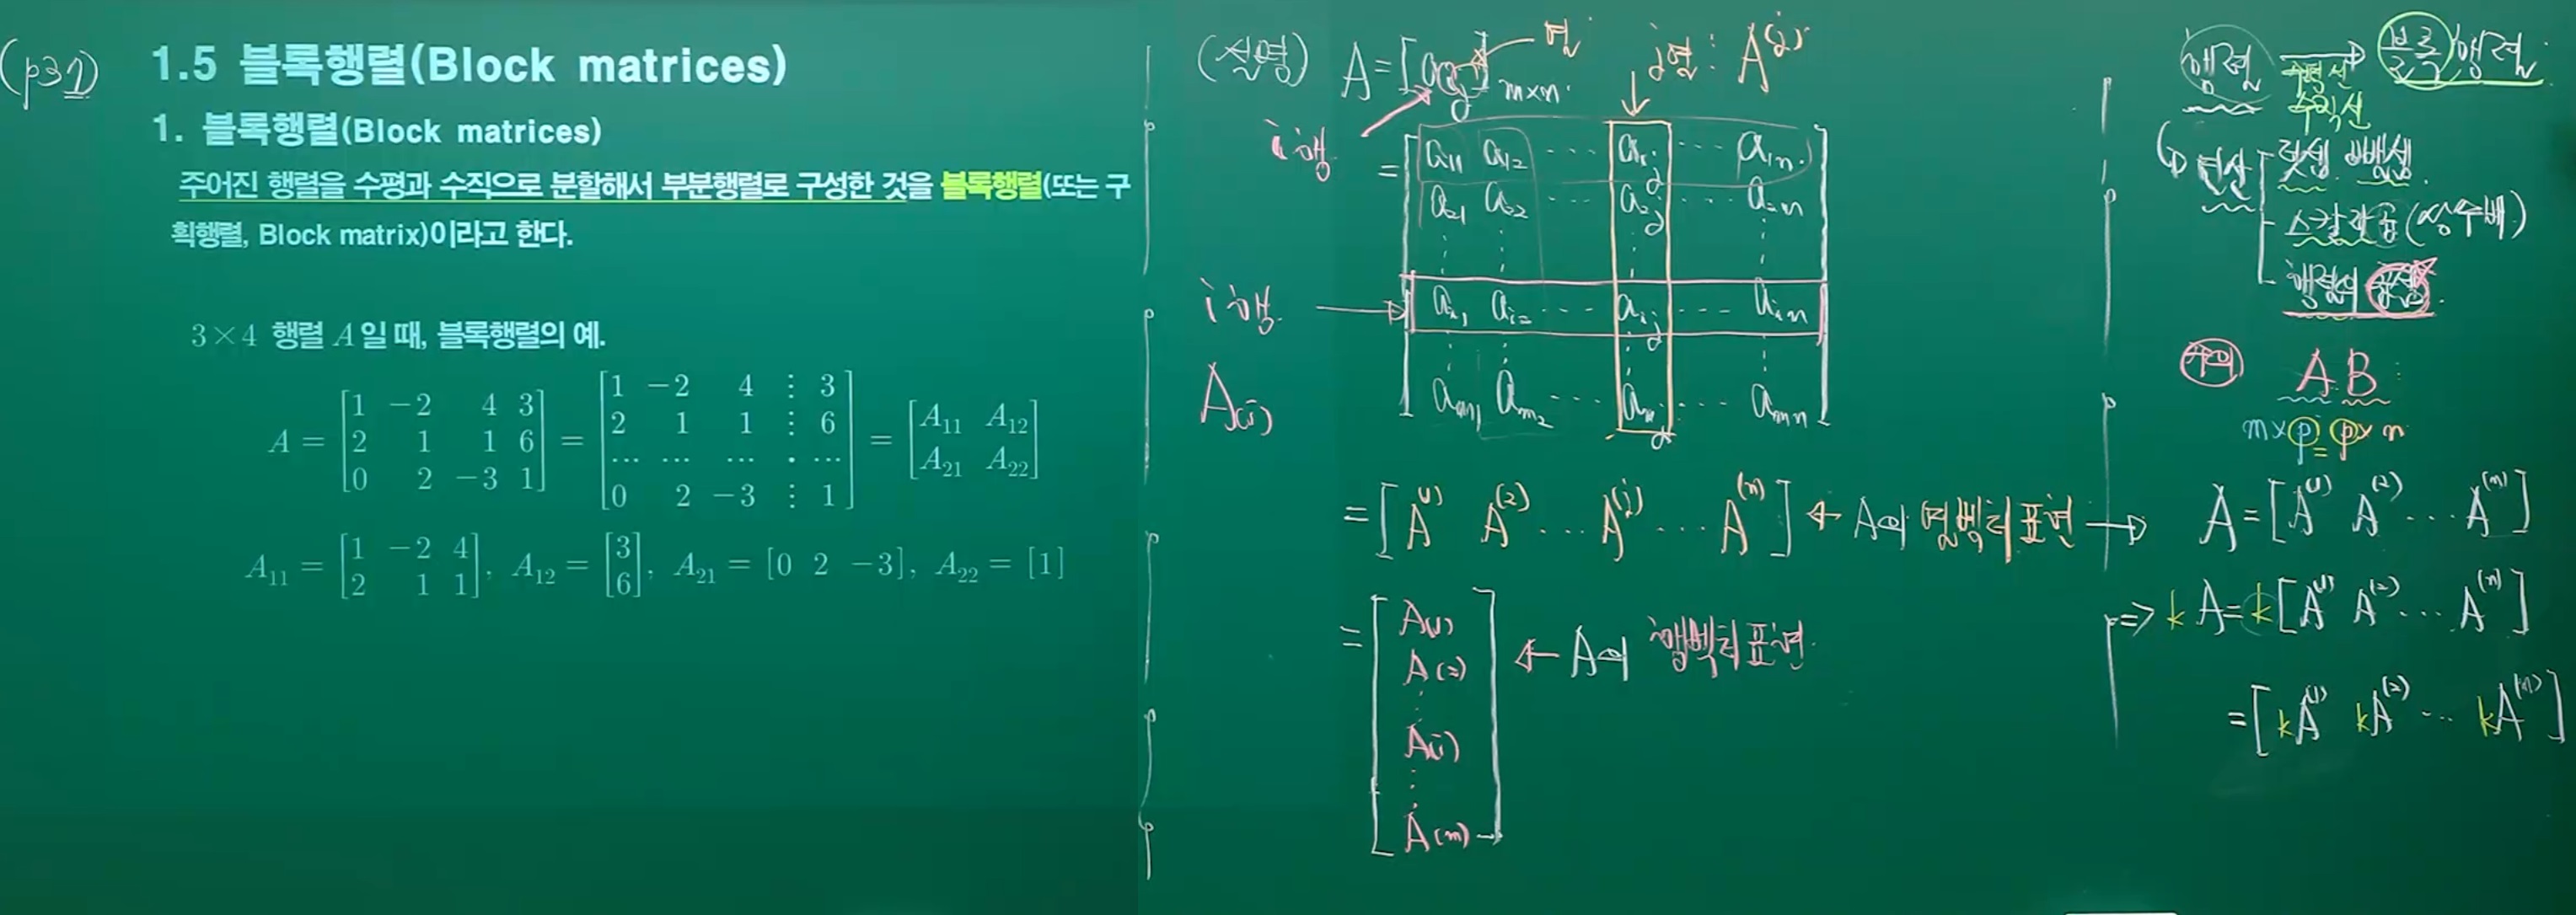 (p31)
1.5 블록행렬(Block matrices)
1. 블록행렬(Block matrices)
주어진 행렬을 수평과 수직으로 분할해서 부분행렬로 구성한 것을 블록행렬(또는 구
획행렬, Block matrix)이라고 한다.
3×4 행렬 A일 때, 블록행렬의 예.
A = [1 -2 4 3
2 1 1 6
0 2 -3 1]
= [1 -2 4 ⋮ 3
2 1 1 ⋮ 6
… … … . …
0 2 -3 ⋮ 1]
= [A₁₁ A₁₂
A₂₁ A₂₂]
A₁₁ = [1 -2 4
2 1 1], A₁₂ = [3
6], A₂₁ = [0 2 -3], A₂₂ = [1]
(설명) A = [aᵢⱼ] m×n.
열
j열 : A⁽ʲ⁾
i행
= [a₁₁ a₁₂ … a₁ⱼ … a₁ₙ
a₂₁ a₂₂ … a₂ⱼ … a₂ₙ
⋮ ⋮ ⋮ ⋮
aᵢ₁ aᵢ₂ … aᵢⱼ … aᵢₙ
⋮ ⋮ ⋮ ⋮
aₘ₁ aₘ₂ … aₘⱼ … aₘₙ]
i행 →
A(i)
= [A⁽¹⁾ A⁽²⁾ … A⁽ʲ⁾ … A⁽ⁿ⁾] ← A의 열벡터 표현 →
= [A(1)
A(2)
⋮
A(i)
⋮
A(m)] ← A의 행벡터 표현.
행렬 → 블록행렬
수평선
수직선
(1) 연산
덧셈, 뺄셈
스칼라곱(상수배)
행렬의 곱셈.
주의 AB
m×p p×n
A = [A⁽¹⁾ A⁽²⁾ … A⁽ⁿ⁾]
⇒ kA = k[A⁽¹⁾ A⁽²⁾ … A⁽ⁿ⁾]
= [kA⁽¹⁾ kA⁽²⁾ … kA⁽ⁿ⁾]